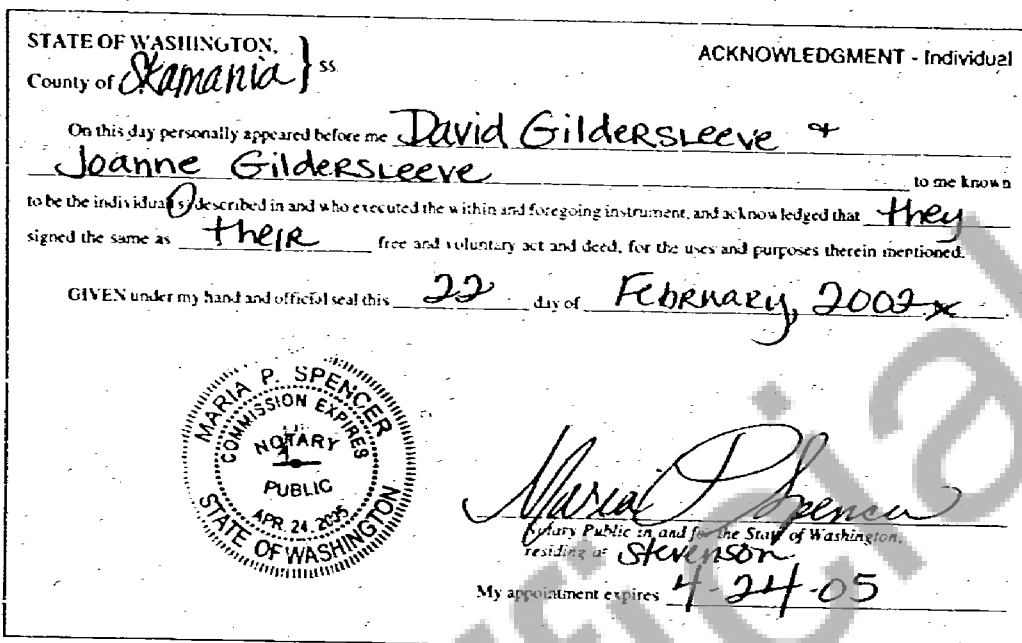 STATE OF WASHINGTON,
County of Skamania } ss.
ACKNOWLEDGMENT - Individual
On this day personally appeared before me David Gildersleeve &
Joanne Gildersleeve to me known
to be the individual(s) described in and who executed the within and foregoing instrument, and acknowledged that they
signed the same as their free and voluntary act and deed, for the uses and purposes therein mentioned.
GIVEN under my hand and official seal this 22 day of February, 2002
MARIA P. SPENCER
COMMISSION EXPIRES
NOTARY
PUBLIC
APR. 24, 2005
STATE OF WASHINGTON
Maria P Spencer
Notary Public in and for the State of Washington,
residing at Stevenson
My appointment expires 4-24-05